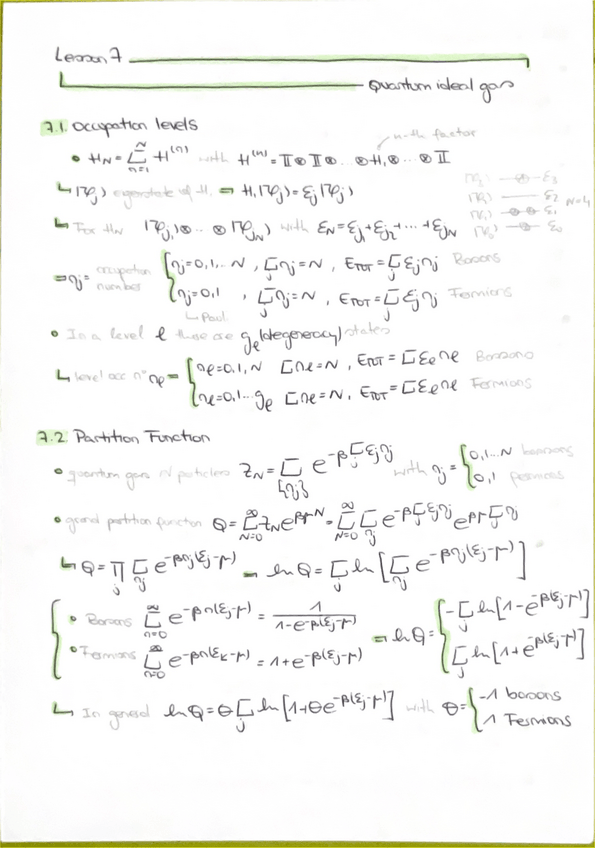 Lesson 7
Quantum ideal gas
7.1. Occupation levels
n-th factor
• H_N = Σ_{n=1}^{N} H^{(n)} with H^{(n)} = 𝕀⊗𝕀⊗...⊗H_1⊗...⊗𝕀
↳ |ψ_j⟩ eigenstate of H_1 ⇒ H_1|ψ_j⟩ = ε_j|ψ_j⟩
|ψ_3⟩ ε_3
|ψ_2⟩ ε_2
|ψ_1⟩ ε_1 N=4
|ψ_0⟩ ε_0
↳ For H_N |ψ_{j1}⟩⊗...⊗|ψ_{jN}⟩ with E_N = ε_{j1}+ε_{j2}+...+ε_{jN}
⇒ η_j = occupation number { η_j = 0,1,..N , Σ_j η_j = N , E_TOT = Σ_j ε_j η_j Bosons
η_j = 0,1 , Σ_j η_j = N , E_TOT = Σ_j ε_j η_j Fermions
↳ Pauli
• In a level ℓ there are g_ℓ (degeneracy) states
↳ level occ nº n_ℓ = { n_ℓ = 0,1,N Σn_ℓ = N , E_TOT = Σε_ℓ n_ℓ Bosons
n_ℓ = 0,1...g_ℓ Σn_ℓ = N , E_TOT = Σε_ℓ n_ℓ Fermions
7.2. Partition Function
• quantum gas N particles Z_N = Σ_{{η_j}} e^{-βΣ_j ε_j η_j} with η_j = { 0,1...N bosons
0,1 fermions
• grand partition function Q = Σ_{N=0}^{∞} Z_N e^{βμN} = Σ_{N=0}^{∞} Σ_{η_j} e^{-βΣε_j η_j} e^{βμΣη_j}
↳ Q = Π_j Σ_{η_j} e^{-βη_j(ε_j-μ)} ⇒ ln Q = Σ_j ln [Σ_{η_j} e^{-βη_j(ε_j-μ)}]
• Bosons Σ_{n=0}^{∞} e^{-βn(ε_j-μ)} = 1/(1-e^{-β(ε_j-μ)})
• Fermions Σ_{n=0}^{∞} e^{-βn(ε_k-μ)} = 1+e^{-β(ε_j-μ)}
⇒ ln Q = { -Σ_j ln[1-e^{-β(ε_j-μ)}]
Σ_j ln[1+e^{-β(ε_j-μ)}]
↳ In general ln Q = θ Σ_j ln [1+θe^{-β(ε_j-μ)}] with θ = { -1 bosons
1 Fermions